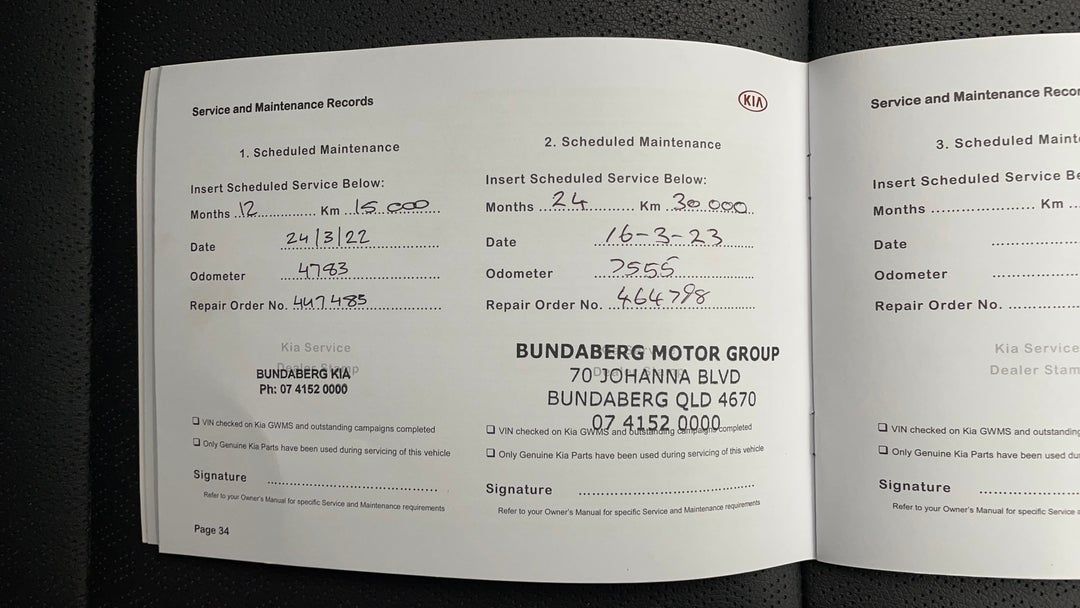 Service and Maintenance Records
KIA
1. Scheduled Maintenance
Insert Scheduled Service Below:
Months 12 Km 15 000
Date 24/3/22
Odometer 4783
Repair Order No. 447485
Kia Service
Dealer Stamp
BUNDABERG KIA
Ph: 07 4152 0000
VIN checked on Kia GWMS and outstanding campaigns completed
Only Genuine Kia Parts have been used during servicing of this vehicle
Signature
Refer to your Owner's Manual for specific Service and Maintenance requirements
Page 34
2. Scheduled Maintenance
Insert Scheduled Service Below:
Months 24 Km 30 000
Date 16-3-23
Odometer 7555
Repair Order No. 464798
BUNDABERG MOTOR GROUP
70 JOHANNA BLVD
BUNDABERG QLD 4670
07 4152 0000
VIN checked on Kia GWMS and outstanding campaigns completed
Only Genuine Kia Parts have been used during servicing of this vehicle
Signature
Refer to your Owner's Manual for specific Service and Maintenance requirements
Service and Maintenance Recor
3. Scheduled Maint
Insert Scheduled Service Be
Months Km
Date
Odometer
Repair Order No.
Kia Service
Dealer Stam
VIN checked on Kia GWMS and outstanding
Only Genuine Kia Parts have been used du
Signature
Refer to your Owner's Manual for specific Service a